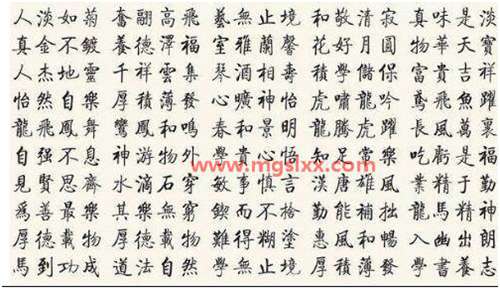 人淡如菊 奮翮高飛 藝無止境 和敬清寂 真味是淡
真金不鍍 養德澤福 室雅蘭馨 花好月圓 物華天寶
人杰地靈 千祥雲集 琴酒相壽 積學儲保 富貴吉祥
怡然自樂 厚積薄發 心曠神怡 虎嘯龍吟 鳶飛魚躍
龍飛鳳舞 鸞鳳和鳴 春和景明 龍騰虎躍 長風萬裏
自強不息 神游物外 學貴心悟 知足常樂 吃虧是福
www.mgslxx.com
見賢思齊 水滴石穿 敏事慎言 漢唐雄風 業精于勤
爲善最樂 其樂無窮 鍥而不捨 勤能補拙 龍馬精神
厚德載物 厚德載物 難得糊塗 惠風和暢 入幽出朗
馬到功成 道法自然 學無止境 厚積薄發 學書養志